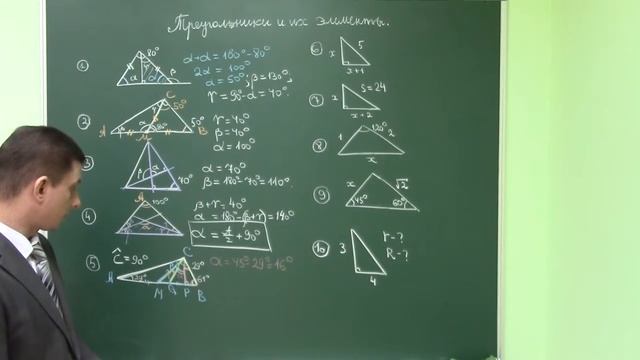 Треугольники и их элементы.
1
80°
α
γ
β
α+α=180°-80°
2α = 100°
α = 50°; β=130°,
γ = 90°-α = 40°.
2
A
M
B
C
50°
80°
50°
γ=40°
β=40°
α=100°
3
β
α
70°
α = 70°
β = 180°-70°=110°.
4
A
100°
α
β+γ=40°
α = 180°-(β+γ)=140°
α = A/2 + 90°
5
Ĉ=90°
A
M
P
B
C
29°
29°
61°
α=45°-29°=16°
6
x
5
x+1
7
x
S=24
x+2
8
1
120°
2
x
9
x
√2
45°
60°
10
3
4
r-?
R-?